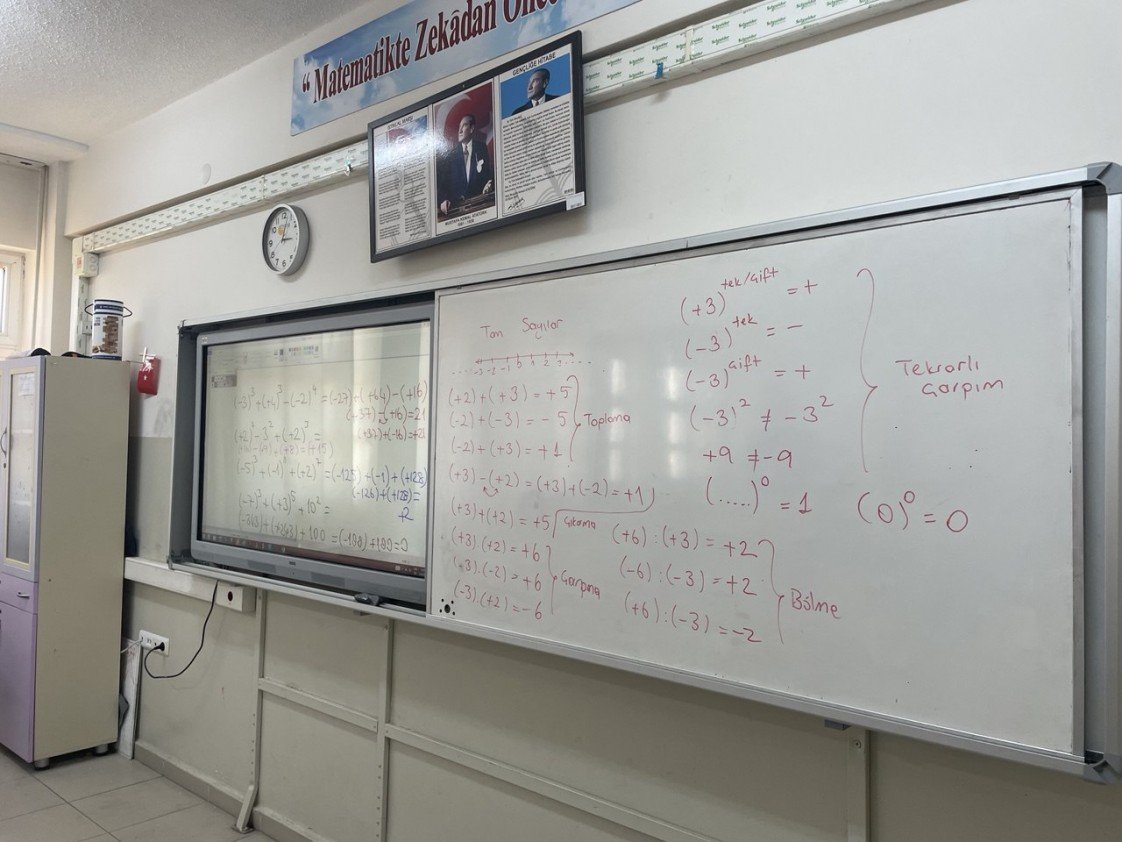 “ Matematikte Zekâdan Önce
İSTİKLAL MARŞI
GENÇLİĞE HİTABE
MUSTAFA KEMAL ATATÜRK
Schneider
(-3)³+(+4)³-(-2)⁴=(-27)+(+64)-(+16)
(+37)-(+16)=21
(+37)+(-16)=+21
(-5)³+(-1)⁵+(+2)⁷=(-125)+(-1)+(+128)
(-126)+(+128)=
(-7)³+(+3)⁵+10²=
(-343)+(+243)+100=(-100)+100=0
Tam Sayılar
-3 -2 -1 0 1 2 3
(+2)+(+3)=+5
(-2)+(-3)=-5
(-2)+(+3)=+1
Toplama
(+3)-(+2)=(+3)+(-2)=+1
(+3)+(+2)=+5
Çıkarma
(+3).(+2)=+6
(+3).(-2)=+6
(-3).(+2)=-6
Çarpma
(+6):(+3)=+2
(-6):(-3)=+2
(+6):(-3)=-2
Bölme
(+3)^tek/çift=+
(-3)^tek=-
(-3)^çift=+
(-3)²≠-3²
+9≠-9
(.....)⁰=1
(0)⁰=0
Tekrarlı
Çarpım